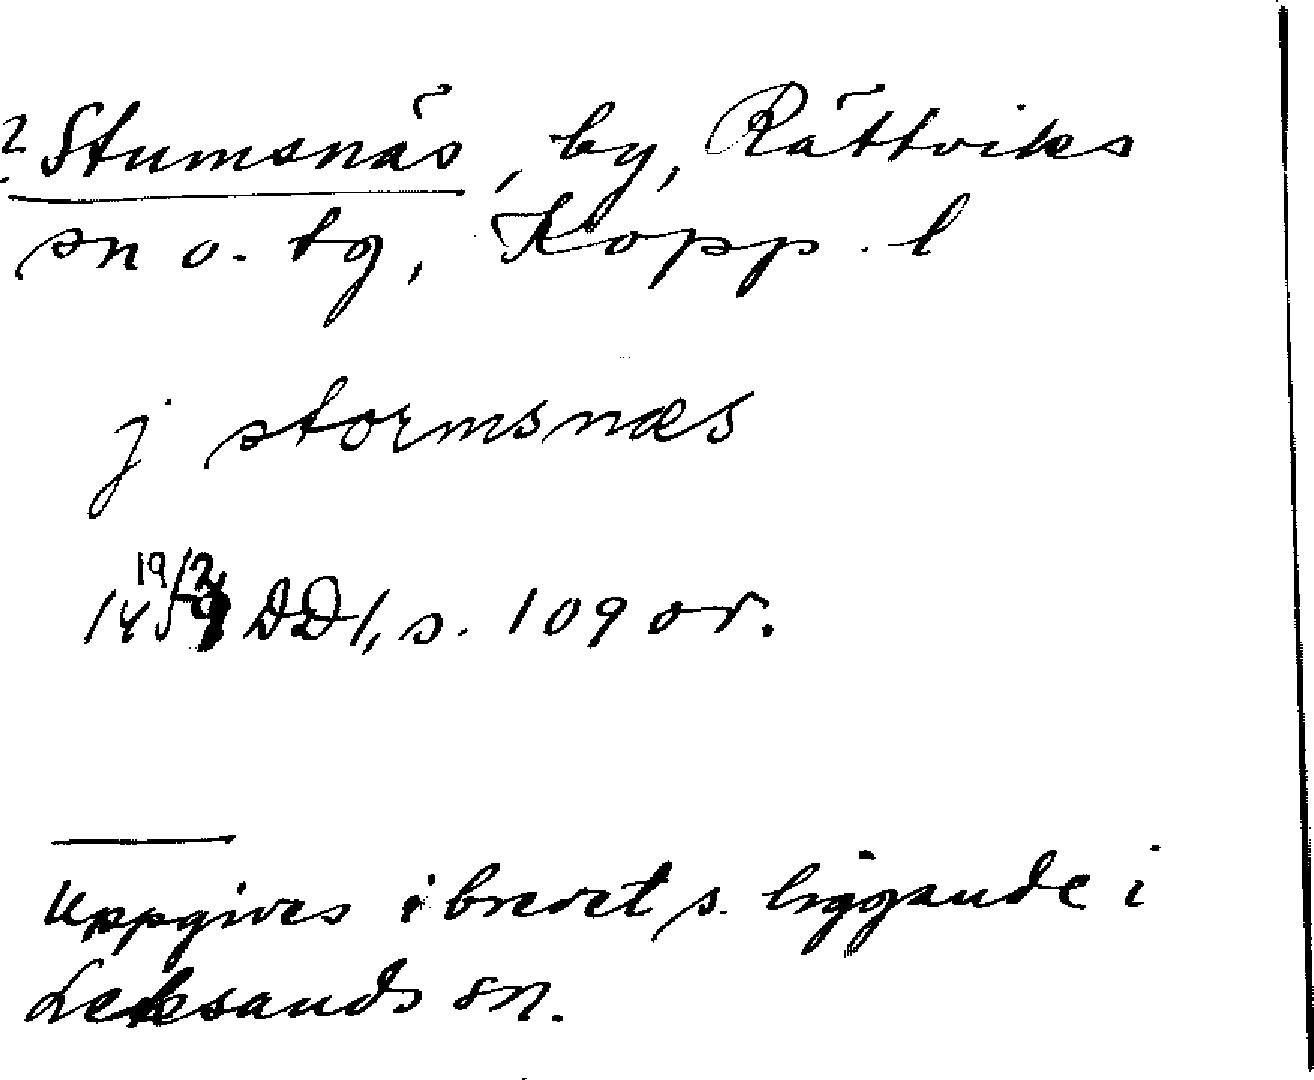 ? Stumsnäs, by, Rättviks
sn o. tg, Kopp. l
j stormsnæs
19/2
1459 DD1, s. 109 or.
Uppgives i brevet s. liggande i
Leksands sn.